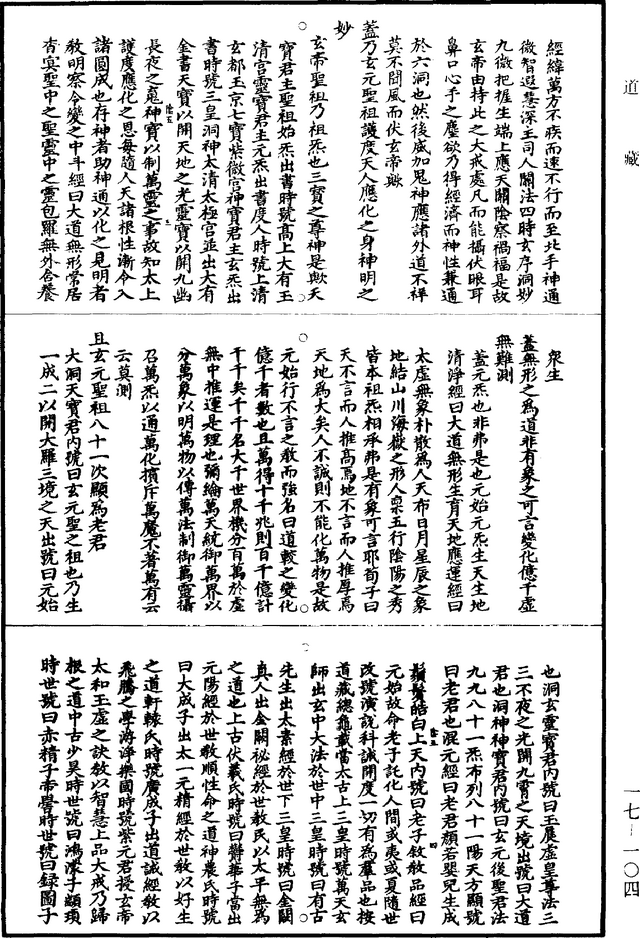 道藏
經緯萬方不疾而速不行而至北手神通
微智遐慧深玉司人關法四時玄序洞妙
九徵把握生端上應天關陰察禍福是故
玄帝由持此之大戒處凡而能攝伏眼耳
鼻口心手之塵欲乃得經濟而神性兼通
於六洞也然後威加鬼神應諸外道不祥
莫不聞風而伏玄帝歟
蓋乃玄元聖祖護度天人應化之身神明之
妙
玄帝聖祖乃祖炁也三寶之尊神是歟天
寶君主聖祖始炁出書時號高上大有玉
清宮靈寶君主元炁出書度人時號上清
玄都玉京七寶紫微宮神寶君主玄炁出
書時號三皇洞神太清太極宮並出大有
金書天寶以開天地之光靈寶以開九幽
長夜之䰟神寶以制萬靈之事故知太上
護度應化之恩每隨人天諸根性漸令入
諸圓成也存神者助神通以化之見明者
教明察令變之中斗經曰大道無形常居
杳冥聖中之聖靈中之靈包羅無外含養
衆生
蓋無形之為道非有象之可言變化億千虛
無難測
蓋元炁也非弗是也元始元炁生天生地
清淨經曰大道無形生育天地應運經曰
太虛無象朴散為人天布日月星辰之象
地結山川海嶽之形人稟五行陰陽之秀
皆本祖炁相承弗是有象可言耶荀子曰
天不言而人推高焉地不言而人推厚焉
天地為大矣人不誠則不能化萬物是故
元始行不言之教而強名曰道較之變化
億千者數也且萬得十千兆則百千億計
千千矣千千名大千世界機分百萬於虛
無中推運是理也彌綸萬天統御萬界以
分萬象以明萬物以傳萬法制御萬靈攝
召萬炁以通萬化擯斥萬魔不著萬有云
云莫測
且玄元聖祖八十一次顯為老君
大洞天寶君內號曰玄元聖之祖也乃生
一成二以開大羅三境之天出號曰元始
也洞玄靈寶君內號曰玉晨虛皇尊法三
三不夜之光開九霄之天境出號曰大道
君也洞神神寶君內號曰玄元後聖君法
九九八十一炁布列八十一陽天方顯號
曰老君也混元經曰老君顏若嬰兒生成
鬚鬢皓白上天內號曰老子敘教品經曰
元始故命老子託化人間或夷或夏隨世
改號演說科誡開度一切有為羣品也按
道藏總龜戴當太古上三皇時號萬天玄
師出玄中大法於世中三皇時號曰有古
先生出太素經於世下三皇時號曰金闕
真人出金闕祕經於世教民以太平無為
之道也上古伏羲氏時號曰鬱華子當出
元陽經於世教順性命之道神農氏時號
曰大成子出太一元精經於世教以好生
之道軒轅氏時號廣成子出道誡經教以
飛騰之學游淨樂國時號紫元君授玄帝
太和玉虛之訣教以智慧上品大戒乃歸
根之道中古少昊時世號曰鴻濛子顓頊
時世號曰赤精子帝嚳時世號曰録圖子
一七-一〇四